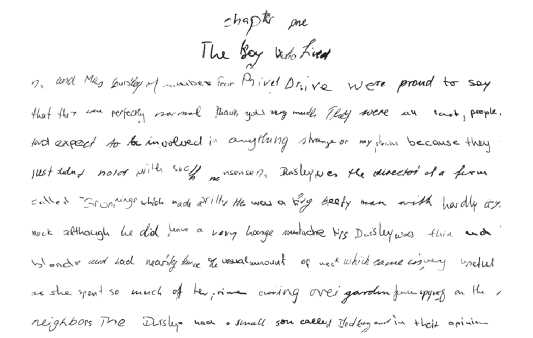 chapter one
The Boy who Lived
and Mrs Dursley of number four Privet Drive were proud to say
that they were perfectly normal thank you very much. They were last people.
expect to be involved in anything strange or because they
just hold with such nonsense. Dursley was the director of a firm
called which made drills He was a big beefy man with hardly any
neck although he did have a very large mustache Mrs Dursley was thin and
blonde and had nearly twice the usual amount of neck which came in very useful
as she spent so much of her time over garden on the
neighbors The Dursleys had a small son called in their opinion